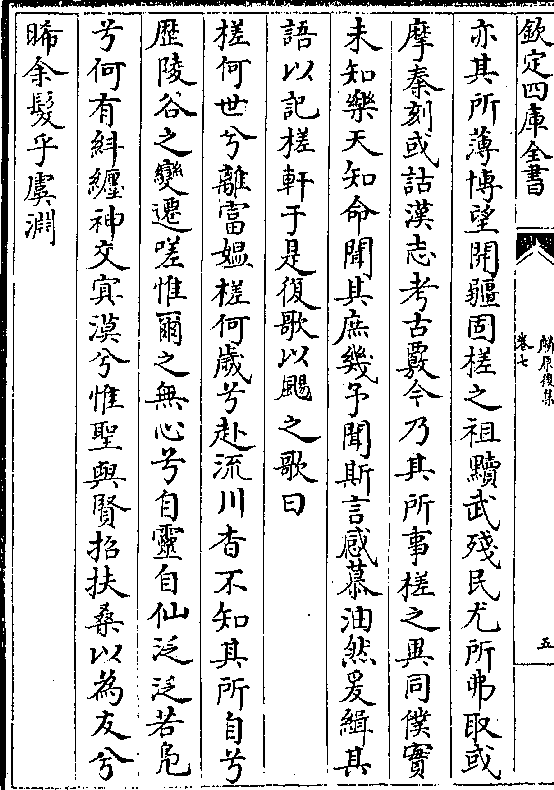 欽定四庫全書
卷七
五
亦其所薄博望開疆固槎之祖黷武殘民尤所弗取或
摩秦刻或詁漢志考古覈今乃其所事槎之異同僕實
未知樂天知命聞其庶幾予聞斯言感慕油然爰緝其
語以記槎軒于是復歌以颺之歌曰
槎何世兮離富媪槎何歲兮赴流川杳不知其所自兮
歷陵谷之變遷嗟惟爾之無心兮自靈自仙泛泛若鳬
兮何有糾纒神交㝠漠兮惟聖與賢招扶桑以為友兮
晞余髮乎虞淵